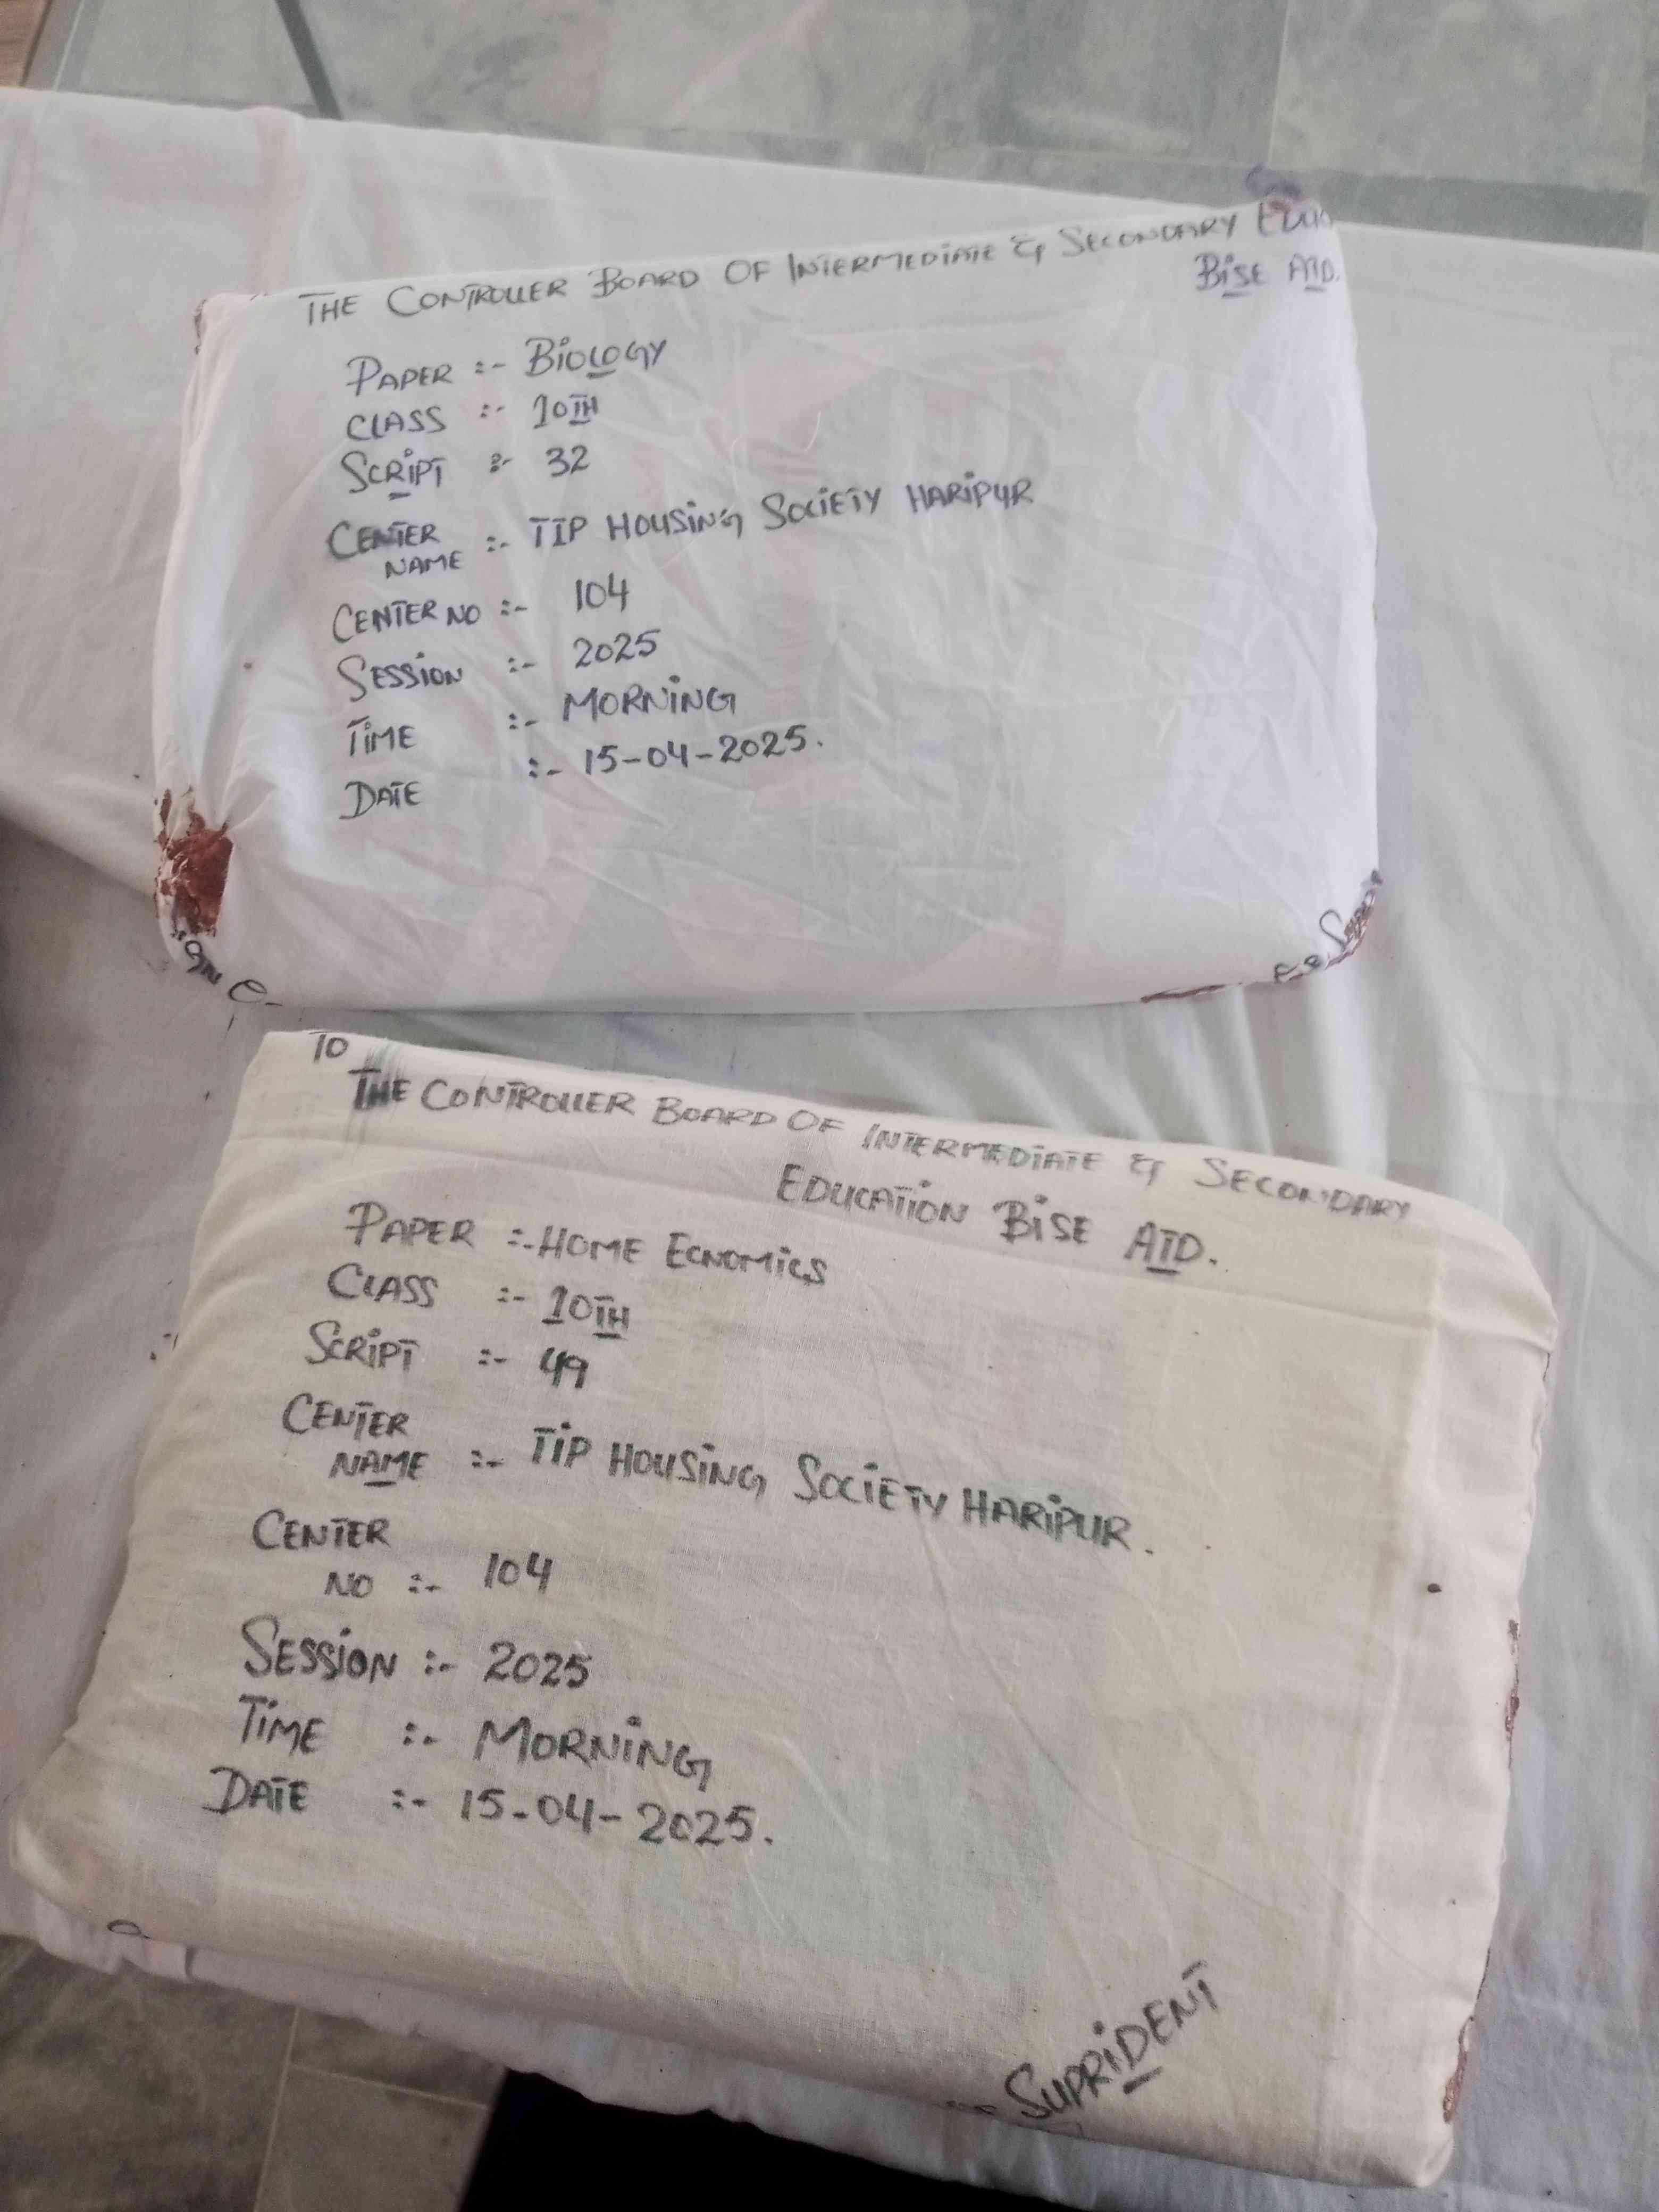 THE CONTROLLER BOARD OF INTERMEDIATE & SECONDARY
BISE ATD.
PAPER :- BIOLOGY
CLASS :- 10TH
SCRIPT :- 32
CENTER
NAME :- TIP HOUSING SOCIETY HARIPUR
CENTER NO :- 104
SESSION :- 2025
TIME :- MORNING
DATE :- 15-04-2025.
TO
THE CONTROLLER BOARD OF INTERMEDIATE & SECONDARY
EDUCATION BISE ATD.
PAPER :- HOME ECNOMICS
CLASS :- 10TH
SCRIPT :- 49
CENTER
NAME :- TIP HOUSING SOCIETY HARIPUR.
CENTER
NO :- 104
SESSION :- 2025
TIME :- MORNING
DATE :- 15-04-2025.
SUPRIDENT